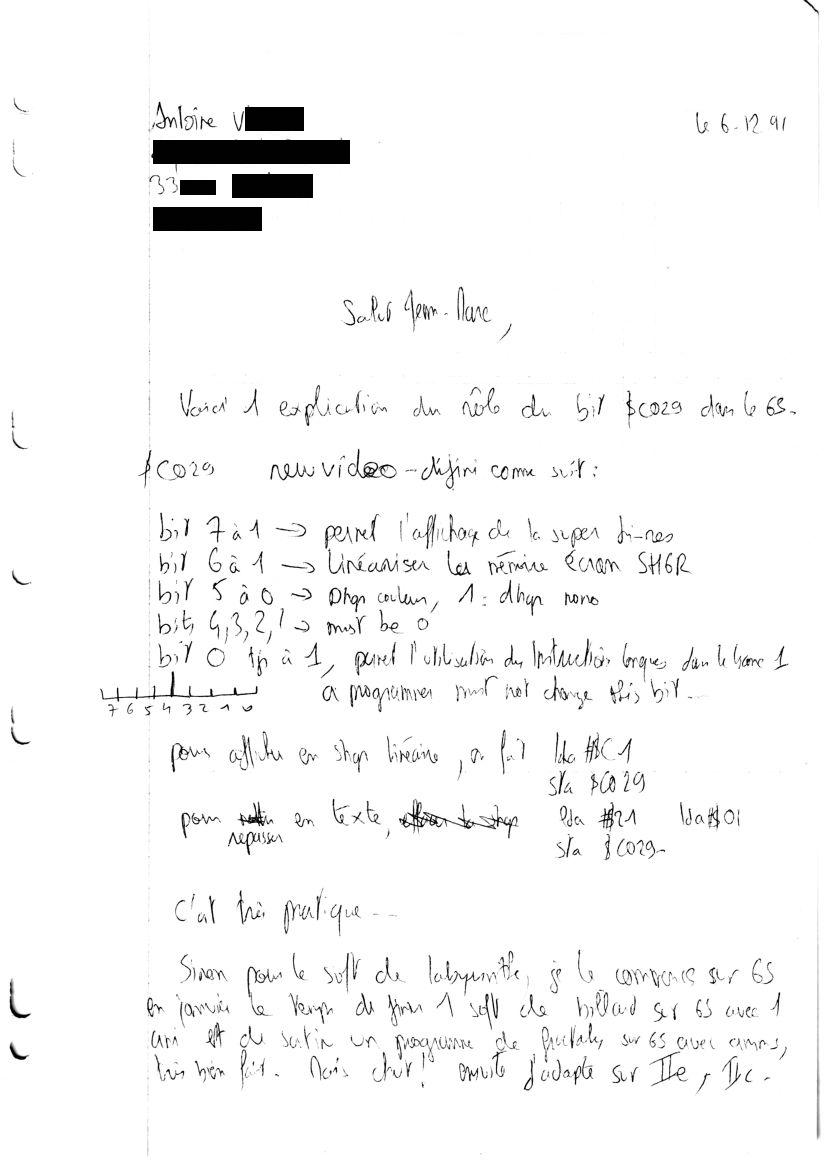 Antoine V
le 6.12.91
33
Salut Jean-Marc,
Voici 1 explication du rôle du bit $C029 dans le GS.
$C029 newvideo - défini comme suit :
bit 7 à 1 → permet l'affichage de la super hi-res
bit 6 à 1 → linéariser la mémoire écran SHGR
bit 5 à 0 → Dhgr couleur, 1 : dhgr mono
bits 4,3,2,1 → must be 0
bit 0 tjs à 1, permet l'utilisation des Instructions longues dans le banc 1
a programmer must not change this bit...
7 6 5 4 3 2 1 0
pour afficher en shgr linéaire, on fait lda #$C1
sta $C029
pour repasser en texte, lda #$21 lda #$01
sta $C029
C'est très pratique...
Sinon pour le soft de labyrinthe, je le commence sur GS
en janvier le temps de finir 1 soft de billard sur GS avec 1
ami et de sortir un programme de fractales sur GS avec
très bien fait. Mais chut! ensuite j'adapte sur IIe, IIc.